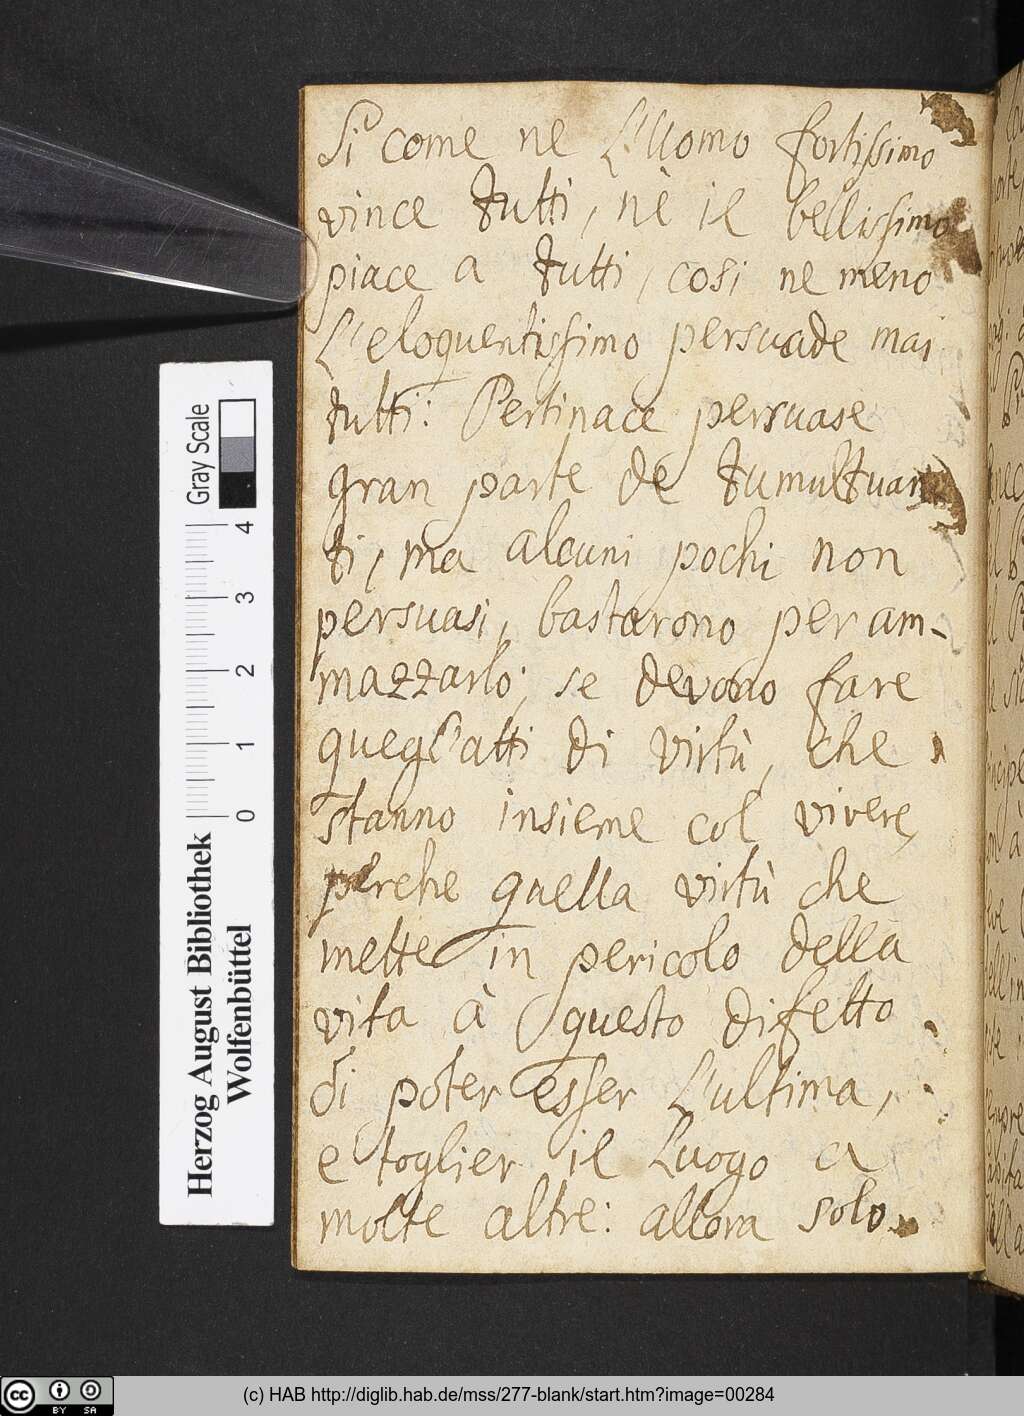 Si come ne L'Uomo fortissimo
vince tutti, nè il bellissimo
piace a tutti, cosi ne meno
L'eloquentissimo persuade mai
tutti: Pertinace persuase
gran parte de tumultuan
ti, ma alcuni pochi non
persuasi, bastarono per am-
mazzarlo; se devono fare
quegl'atti di virtù, che
stanno insieme col vivere,
perche quella virtù che
mette in pericolo della
vita à questo difetto
di poter esser L'ultima,
e toglier il luogo a
molte altre: allora solo
Herzog August Bibliothek
Wolfenbüttel
0 1 2 3 4
Gray Scale
cc BY SA
(c) HAB http://diglib.hab.de/mss/277-blank/start.htm?image=00284